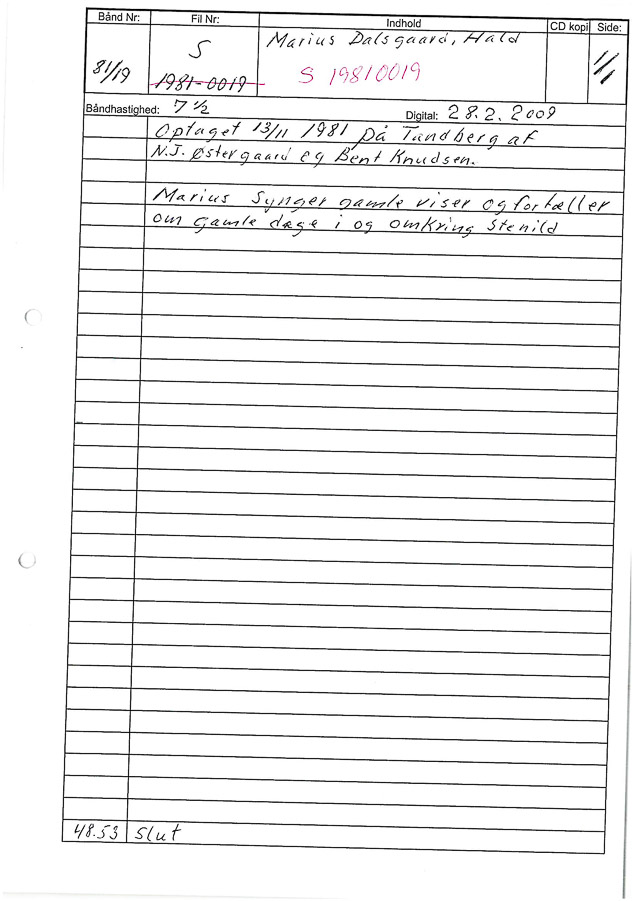 Bånd Nr: Fil Nr: Indhold CD kopi Side:
81/19 S Marius Dalsgaard, Hald 1/1
1981-0019 S 19810019
Båndhastighed: 7 1/2 Digital: 28.2.2009
Optaget 13/11 1981 på Tandberg af
N.J. Østergaard og Bent Knudsen.
Marius Synger gamle viser og fortæller
om gamle dage i og omkring Stenild
48.53 Slut